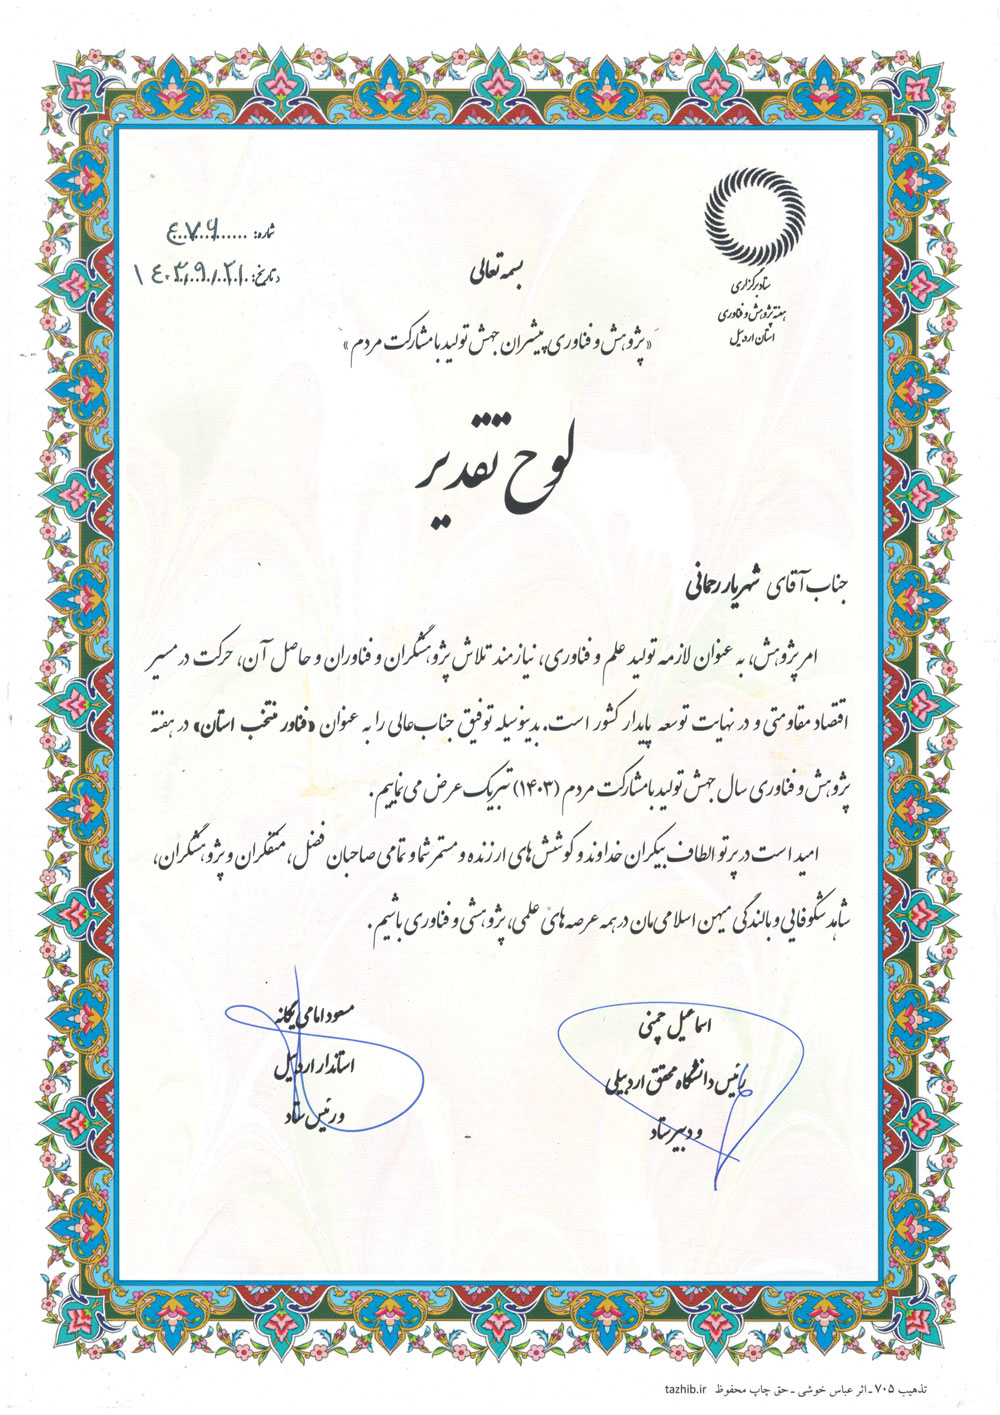 ستاد برگزاری
هفته پژوهش و فناوری
استان اردبیل
شماره: ۴۷۶
تاریخ: ۱۴۰۳/۹/۲۱
بسمه تعالی
«پژوهش و فناوری پیشران جهش تولید با مشارکت مردم»
لوح تقدیر
جناب آقای شهریار رحمانی
امر پژوهش، به عنوان لازمه تولید علم و فناوری، نیازمند تلاش پژوهشگران و فناوران و حاصل آن، حرکت در مسیر
اقتصاد مقاومتی و در نهایت توسعه پایدار کشور است. بدینوسیله توفیق جناب‌عالی را به عنوان «فناور منتخب استان» در هفته
پژوهش و فناوری سال جهش تولید با مشارکت مردم (۱۴۰۳) تبریک عرض می‌نماییم.
امید است در پرتو الطاف بیکران خداوند و کوشش‌های ارزنده و مستمر شما و تمامی صاحبان فضل، متفکران و پژوهشگران،
شاهد شکوفایی و بالندگی میهن اسلامی‌مان در همه عرصه‌های علمی، پژوهشی و فناوری باشیم.
اسماعیل چمنی
رئیس دانشگاه محقق اردبیلی
و دبیر ستاد
مسعود امامی یگانه
استاندار اردبیل
و رئیس ستاد
تذهیب ۷۰۵ ـ اثر عباس خوشی ـ حق چاپ محفوظ tazhib.ir